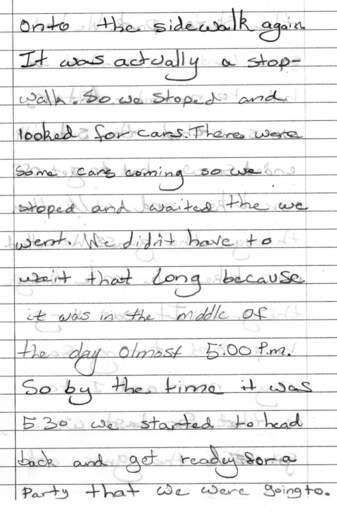 Onto the sidewalk again
It was actually a stop-
walk. So we stoped and
looked for cars. There were
some cars coming so we
stoped and waited the we
went. We didn't have to
wait that long because
it was in the middle of
the day Olmost 5:00 P.m.
So by the time it was
5:30 we started to head
back and get ready for a
Party that we were going to.